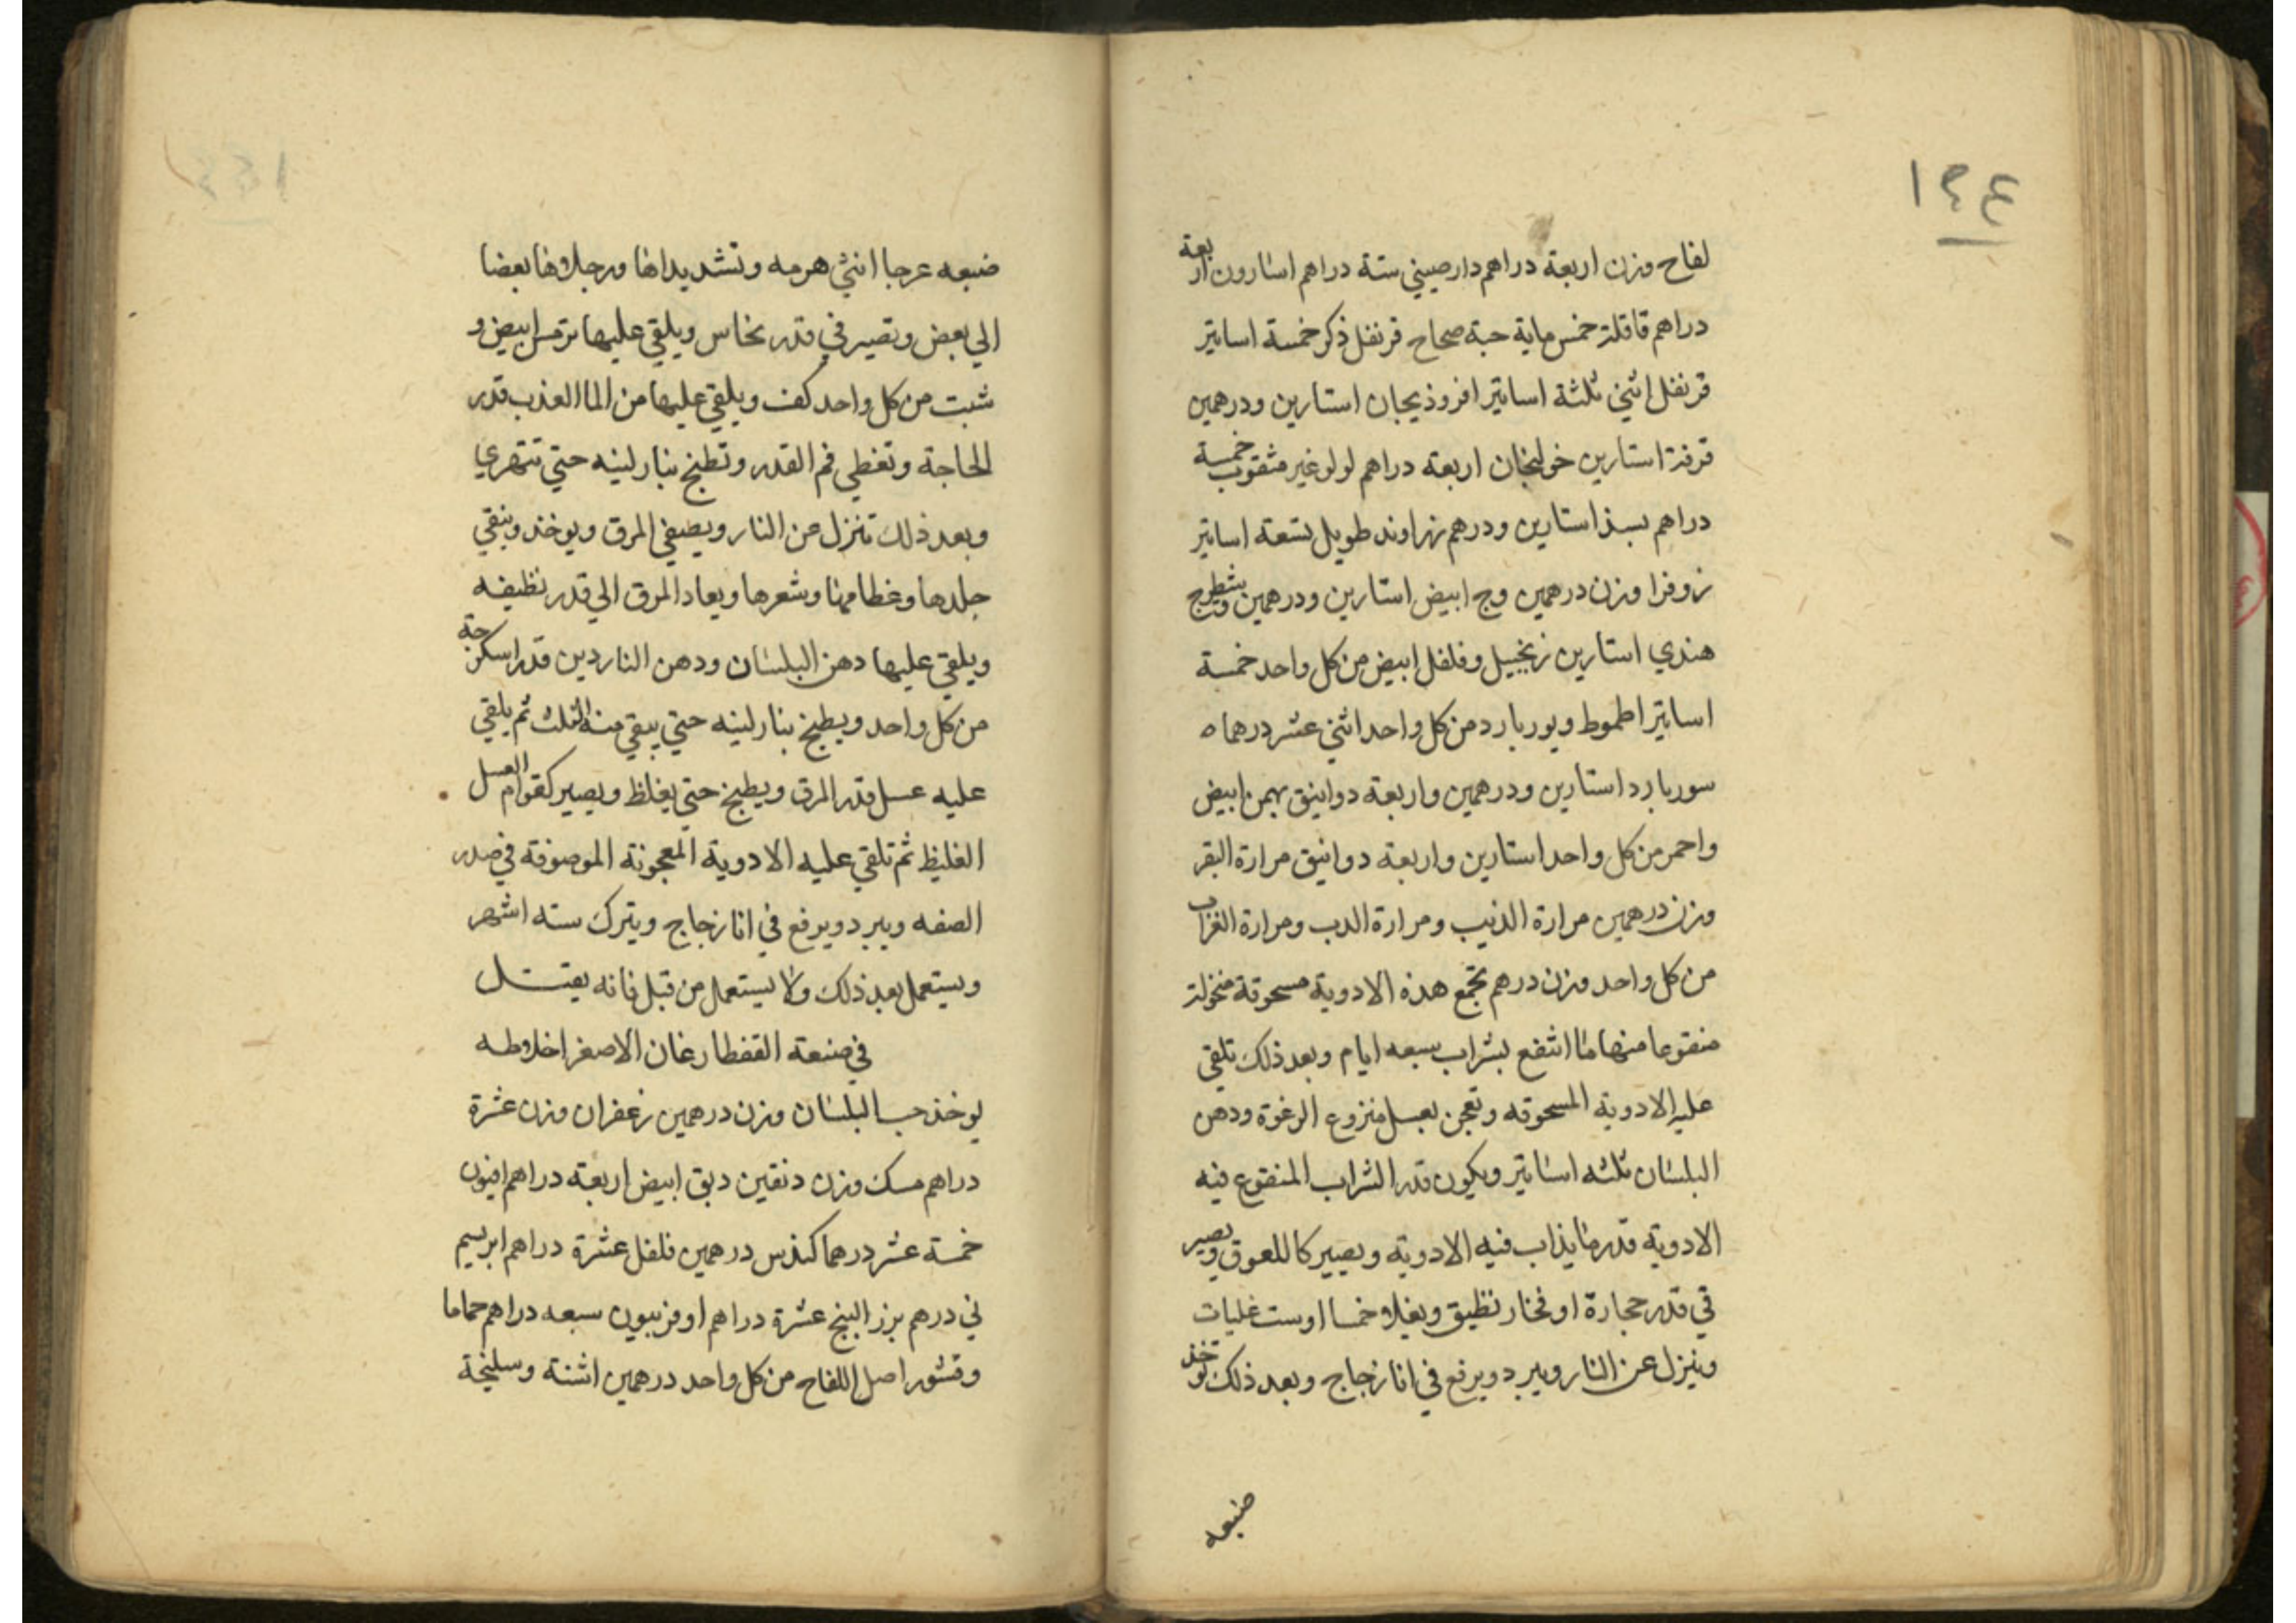 ١٩٤
لفاح وزن اربعة دراهم دارصيني ستة دراهم اسارون اربعة
دراهم قاقلة خمس ماية حبة صحاح قرنفل ذكر خمسة اساتير
قرنفل انثي ثلثة اساتير افروذيجان استارين ودرهمين
قرفة استارين خولنجان اربعة دراهم لولو غير مثقوب خمسة
دراهم بسذ استارين ودرهم زراوند طويل تسعة اساتير
زوفرا وزن درهمين وج ابيض استارين ودرهمين وشيطرج
هندي استارين زنجبيل وفلفل ابيض من كل واحد خمسة
اساتير اطموط وبوربارد من كل واحد اثني عشر درهما ه
سوربارد استارين ودرهمين واربعة دوانيق بهمن ابيض
واحمر من كل واحد استارين واربعة دوانيق مرارة البقر
وزن درهمين مرارة الذيب ومرارة الدب ومرارة الغراب
من كل واحد وزن درهم تجمع هذه الادوية مسحوقة منخولة
منقوعا منها ما انتقع بشراب سبعه ايام وبعد ذلك تلقي
عليه الادوية المسحوقه وتعجن بعسل منزوع الرغوة ودهن
البلسان ثلثه اساتير ويكون قدر الشراب المنقوع فيه
الادوية قدر ما يذاب فيه الادوية ويصير كاللعوق ويصير
في قدر حجارة او فخار نظيق ويغلا خمسا اوست غليات
وينزل عن النار ويبرد ويرفع في انا زجاج وبعد ذلك توخذ
ضبعه
ضبعه عرجا انثي هرمه وتشد يداها ورجلاها بعضا
الي بعض وتصير في قدر نحاس ويلقي عليها ترمس ابيض و
شبت من كل واحد كف ويلقي عليها من الما العذب قدر
الحاجة وتغطي فم القدر وتطبخ بنار لينه حتي تتهري
وبعد ذلك تنزل عن النار ويصفي المرق ويوخذ وينقي
جلدها وعظامها وشعرها ويعاد المرق الي قدر نظيفه
ويلقي عليها دهن البلسان ودهن الناردين قدر اسكرجة
من كل واحد ويطبخ بنار لينه حتي يبقي منه الثلث ثم يلقي
عليه عسل قدر المرق ويطبخ حتي يغلظ ويصير كقوام العسل
الغليظ ثم تلقي عليه الادوية المعجونة الموصوفة في صدر
الصفه ويبرد ويرفع في انا زجاج ويترك سته اشهر
ويستعمل بعد ذلك ولا يستعمل من قبل فانه يقتل
في صنعة القفطارغان الاصغر اخلاوطه
يوخذ حب البلسان وزن درهمين زعفران وزن عشرة
دراهم مسك وزن دنقين دبق ابيض اربعة دراهم افيون
خمسة عشر درهما كندس درهمين فلفل عشرة دراهم ابريسم
ني درهم بزر البنج عشرة دراهم اوفربيون سبعه دراهم حماما
وقشور اصل اللفاح من كل واحد درهمين اشنة وسليخة